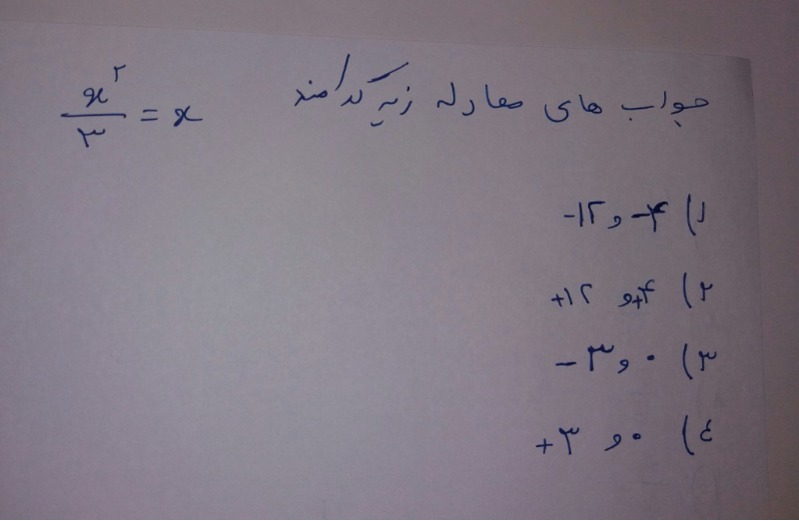 جواب های معادله زیر کدامند x²/۳ = x
۱) -۴ و -۱۲
۲) +۴ و +۱۲
۳) ۰ و -۳
٤) ۰ و +۳